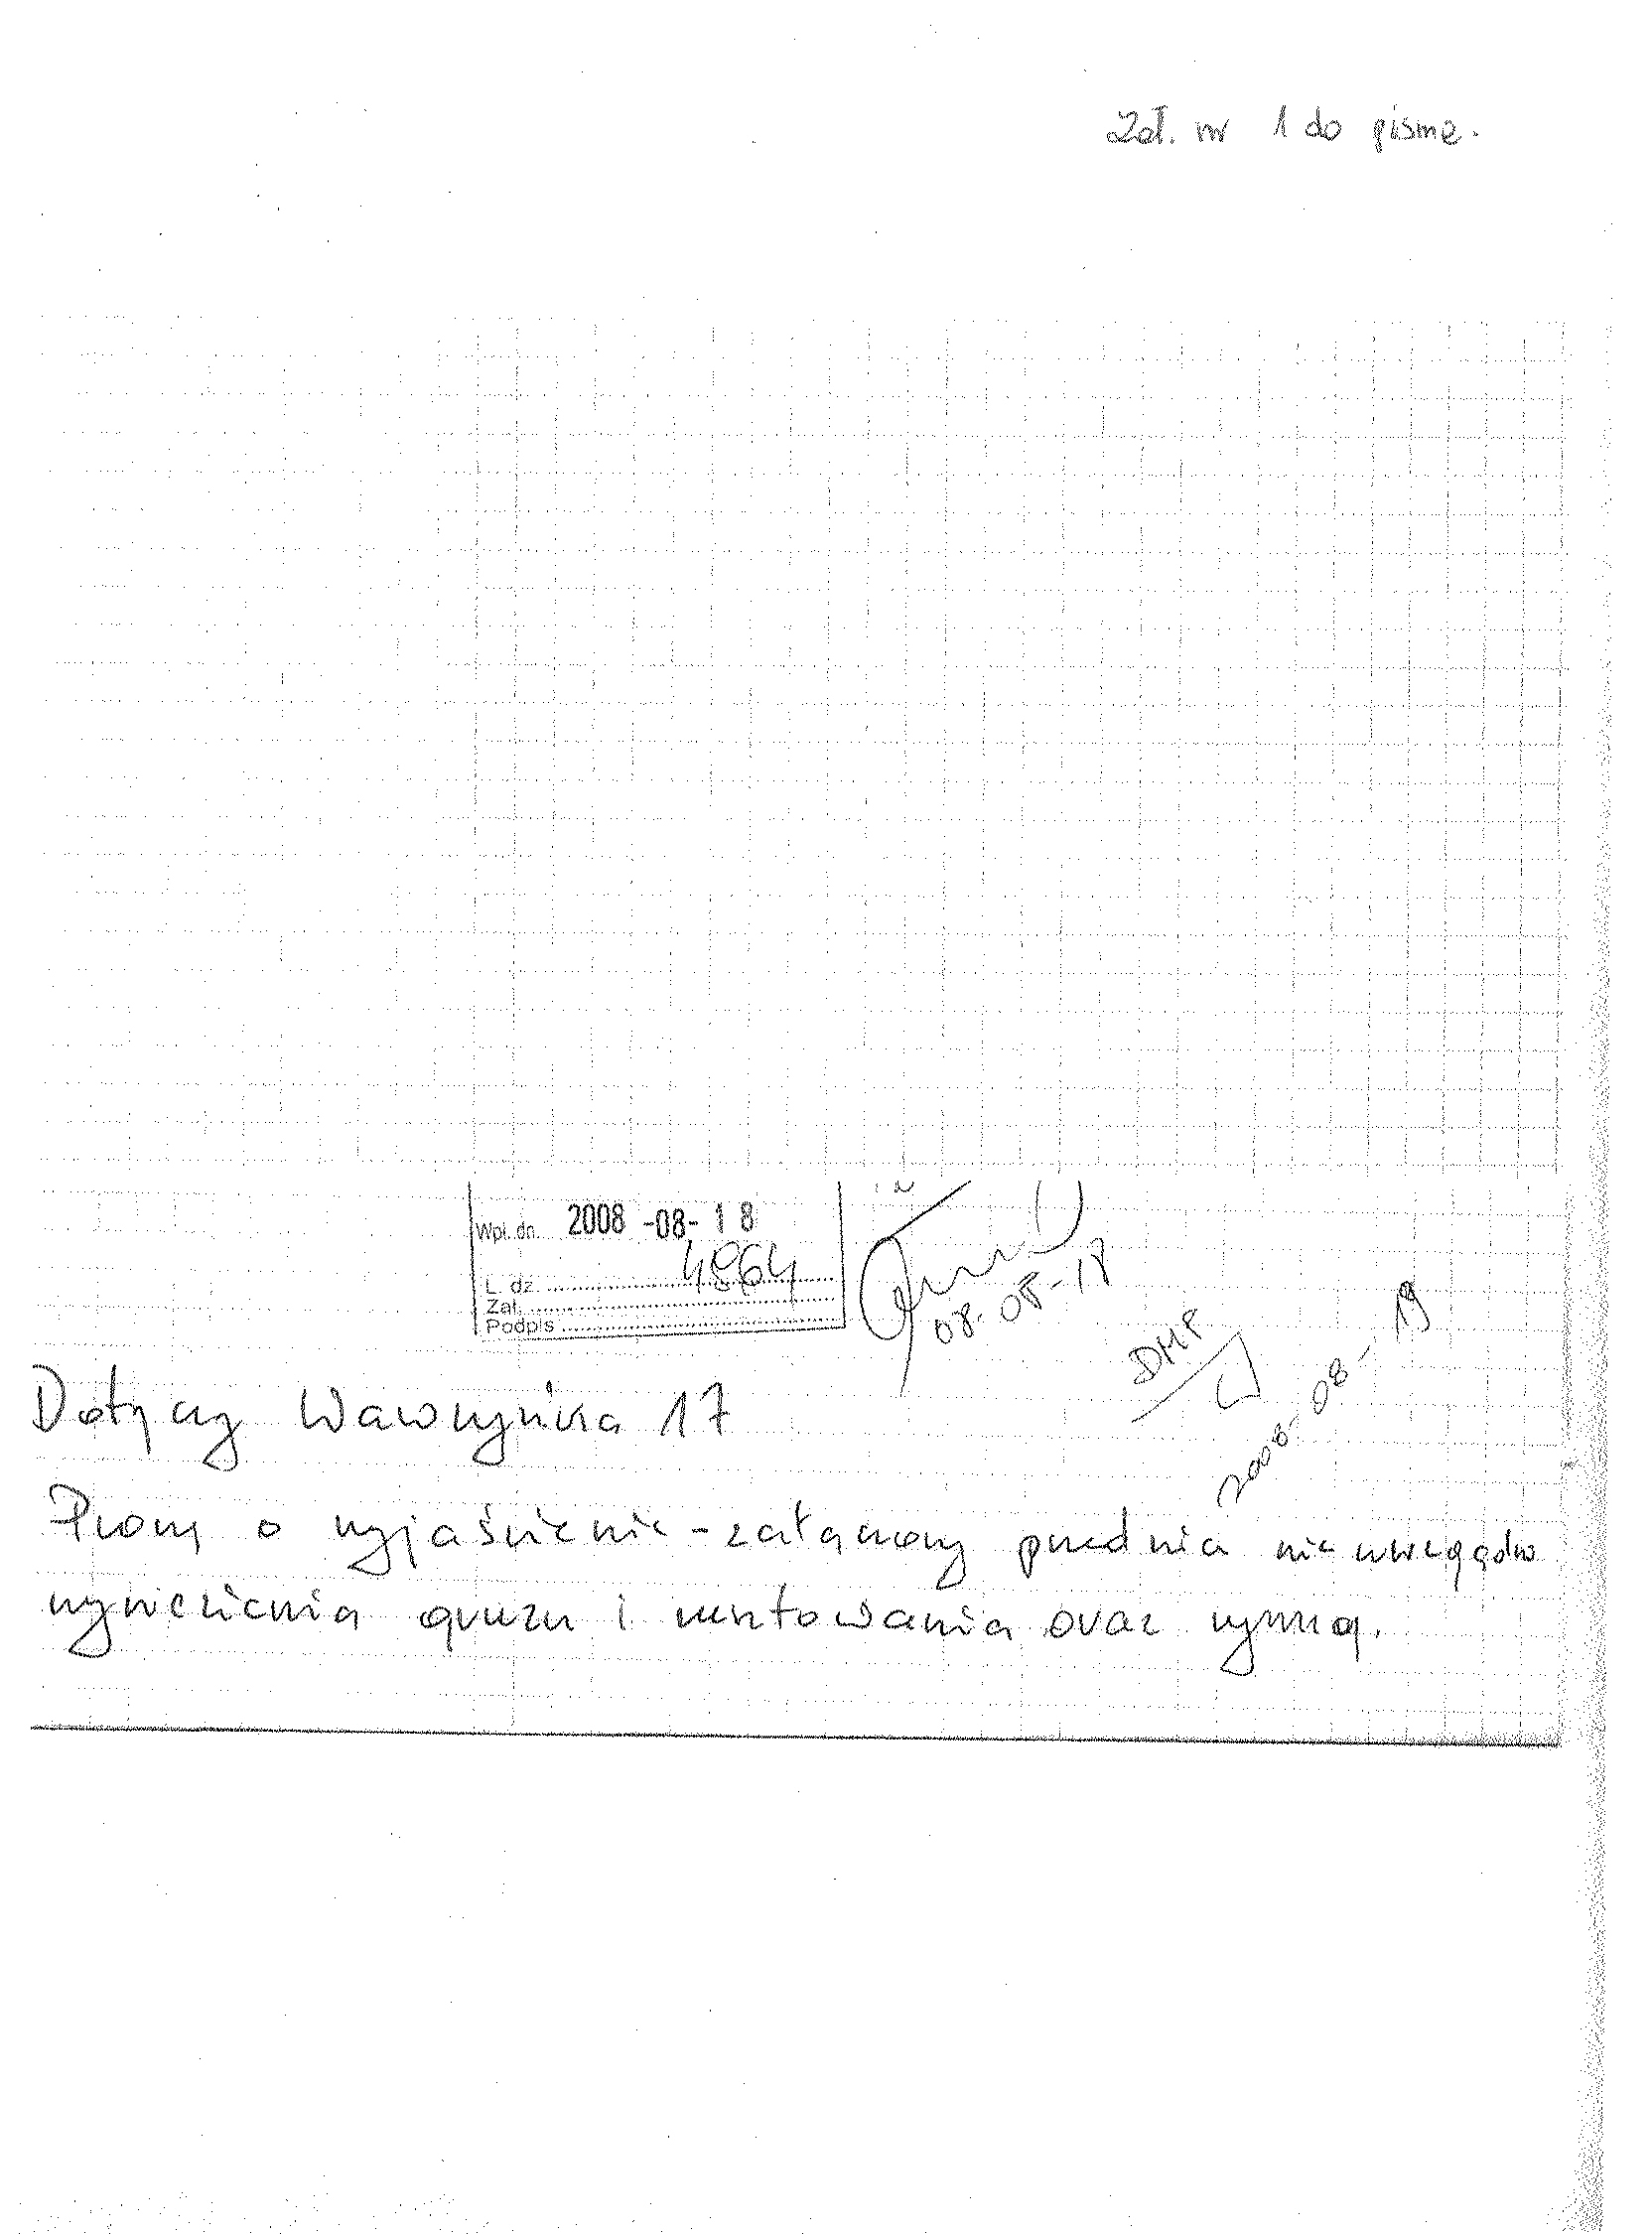 Zał. nr 1 do pisma.
Wpł. dn. 2008 -08- 18
L. dz. 4864
Zał.
Podpis
08-08-18
DMP
2008-08-19
Dotyczy Wawrzyńca 17
Proszę o wyjaśnienie - załączony przedmia nie uwzględnia
wyniesienia gruzu i rusztowania oraz